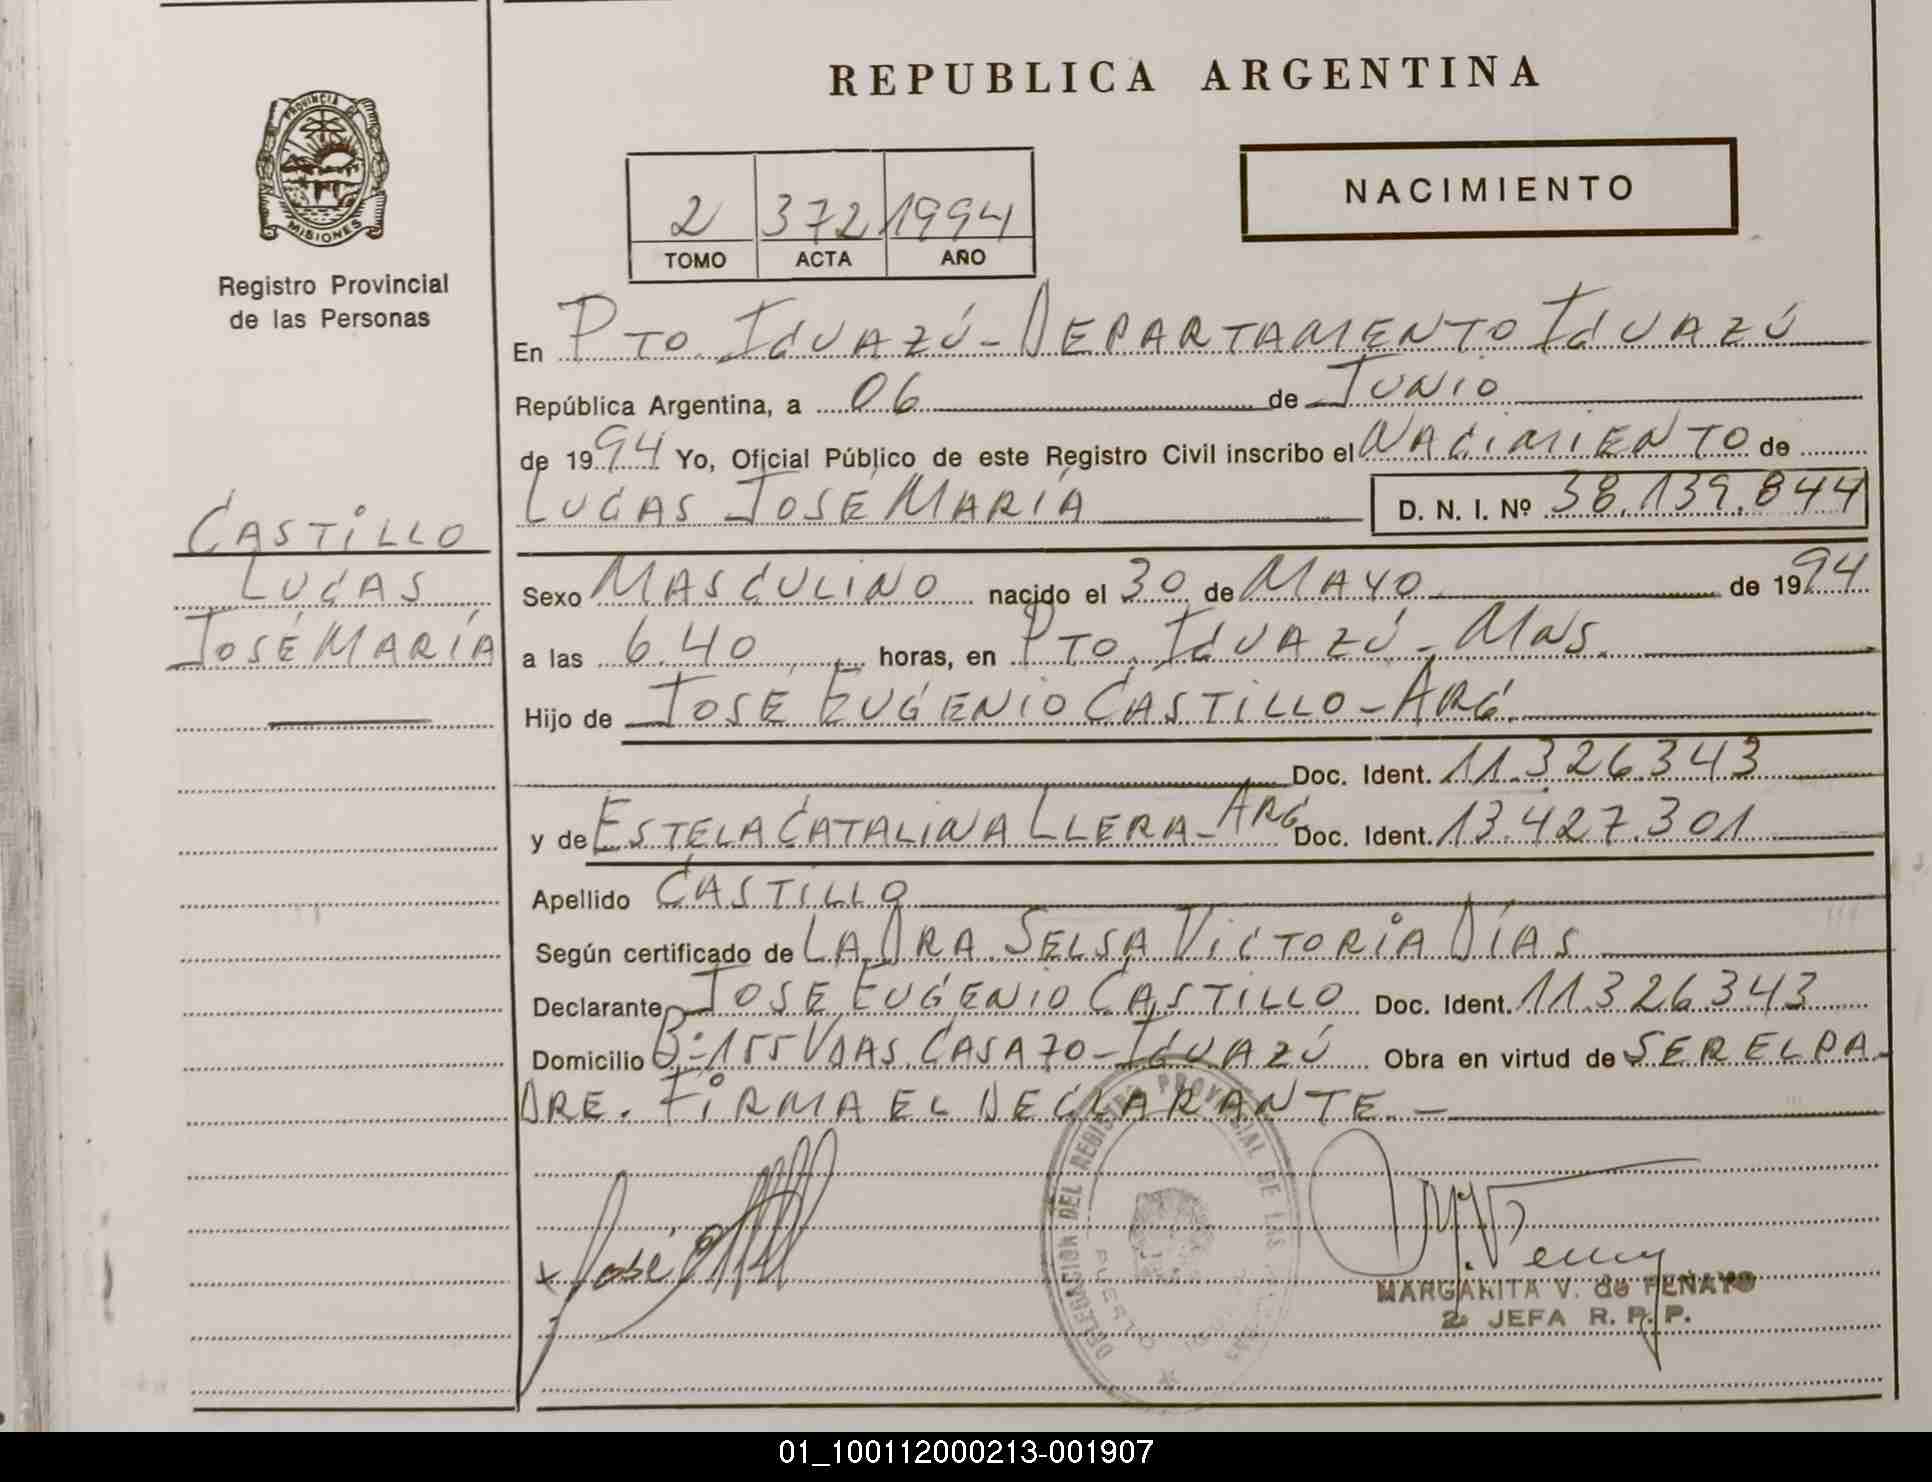 REPUBLICA ARGENTINA
PROVINCIA DE
MISIONES
Registro Provincial
de las Personas
2 372 1994
TOMO ACTA AÑO
NACIMIENTO
En PTO. IGUAZÚ - DEPARTAMENTO IGUAZÚ
República Argentina, a 06 de JUNIO
de 1994 Yo, Oficial Público de este Registro Civil inscribo el NACIMIENTO de
LUCAS JOSÉ MARÍA D. N. I. Nº 38.139.844
CASTILLO
LUCAS
JOSÉ MARÍA
Sexo MASCULINO nacido el 30 de MAYO de 1994
a las 6.40 horas, en PTO. IGUAZÚ - MNS.
Hijo de JOSÉ EUGENIO CASTILLO - ARG.
Doc. Ident. 11.326.343
y de ESTELA CATALINA LLERA - ARG Doc. Ident. 13.427.301
Apellido CASTILLO
Según certificado de LA DRA. SELSA VICTORIA DÍAS
Declarante JOSE EUGENIO CASTILLO Doc. Ident. 11.326.343
Domicilio B:-155 VDAS. CASA 70 - IGUAZÚ Obra en virtud de SER EL PA-
DRE. FIRMA EL DECLARANTE. -
DELEGACION DEL REGISTRO PROVINCIAL DE LAS
PUERTO
x José
MARGARITA V. de PENAYO
2ª JEFA R. P. P.
01_100112000213-001907